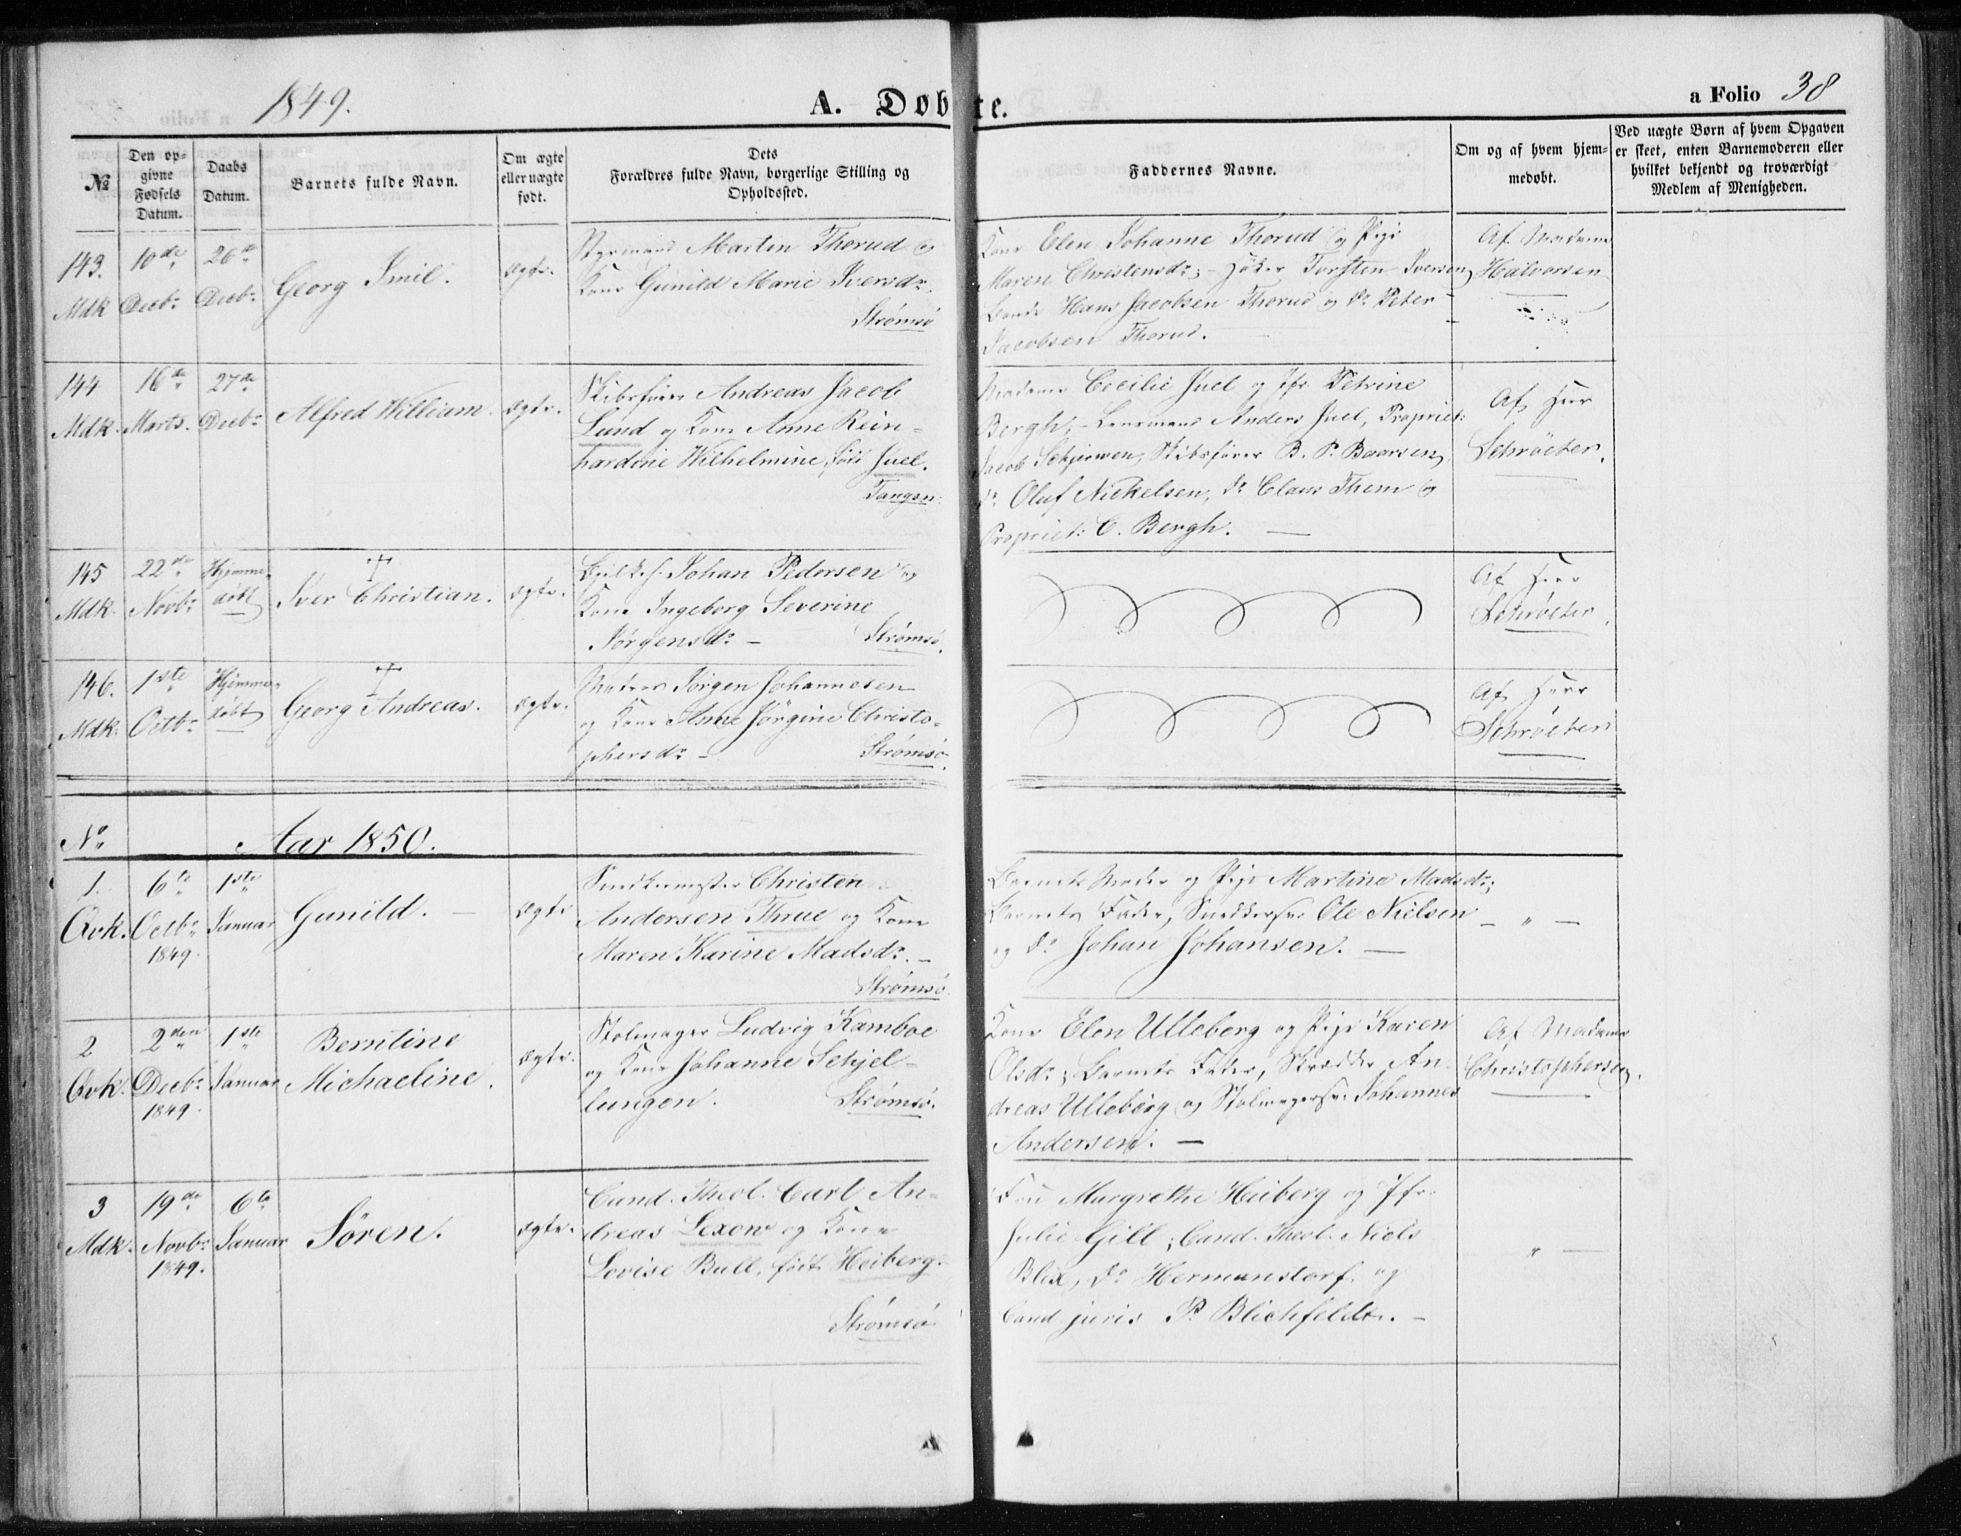 1849.
A. Døbte.
a Folio 38
№
Den op-
givne
Fødsels
Datum.
Daabs
Datum.
Barnets fulde Navn.
Om ægte
eller uægte
født.
Dets
Forældres fulde Navn, borgerlige Stilling og
Opholdssted.
Faddernes Navne.
Om og af hvem hjem-
medøbt.
Ved uægte Børn af hvem Opgaven
er skeet, enten Barnemoderen eller
hvilket bekjendt og troværdigt
Medlem af Menigheden.
143.
Mdk
10de
Decbr
26de
Decbr
Georg Imil.
ægte.
Styrmand Martin Thorud og
Kone Gunild Marie Iversdr.
Strømsø
Kone Elen Johanne Thorud og Pige
Maren Christensdr; Høker Torsten Iversen,
Bonde Hans Jacobsen Thorud og do Peter
Jacobsen Thorud.
Af Madame
Halvorsen
144
Mdk.
16de
Marts.
27de
Decbr
Alfred William.
ægte.
Skibsfører Andreas Jacob
Lund og Kone Anne Rein-
hardine Wilhelmine, født Juel.
Tangen.
Madame Cecilie Juel og Jfr. Petrine
Bergh; Lensmand Anders Juel, Propriet:
Jacob Schjerven, Skibsfører B. P. Baarsen,
do Oluf Nickelsen, do Claus Them og
Propriet: C. Bergh.
Af Herr
Schrøeter.
145
Mdk.
22de
Novbr
Hjemme-
døbt
+
Iver Christian.
ægte.
Johan Pedersen og
Kone Ingeborg Severine
Jørgensdr
Strømsø.
Af Herr
Schrøeter.
146.
Mdk.
1ste
Octbr
Hjemme-
døbt
+
Georg Andreas.
ægte.
Matros Jørgen Johannesen
og Kone Anne Jørgine Christo-
phersdr
Strømsø.
Af Herr
Schrøeter
No
Aar 1850.
1.
Qvk.
6te
Octbr
1849.
1ste
Januar
Gunild.
ægte
Snedkermester Christen
Andersen Thrue og Kone
Maren Karine Madsdr.
Strømsø.
Barnets Moder og Pige Martine Madsdr;
Barnets Fader, Snedkersv. Ole Nielsen
og do Johan Johansen.
– " –
2
Qvk.
2den
Decbr
1849.
1ste
Januar
Berntine
Michaeline.
ægte.
Stolmager Ludvig Kamboe
og Kone Johanne Schjel-
lungen.
Strømsø.
Kone Elen Ulleberg og Pige Karen
Olsdr; Barnets Fader, Skrædder An-
dreas Ulleberg og Stolmagersv. Johannes
Andersen.
Af Madame
Christophersen.
3
Mdk.
19de
Novbr
1849.
6te
Januar
Søren.
ægte.
Cand. Theol. Carl An-
dreas Lexow og Kone
Lovise Bull, født Heiberg.
Strømsø
Fru Margrethe Heiberg og Jfr.
Julie Gill; Cand. Theol. Niels
Blix, do Hermanstorf. og
Cand juris P. Blichfeldt.
– " –